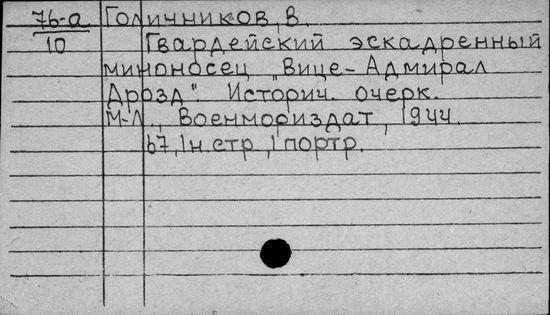 76-а Голичников, В.
10 Гвардейский эскадренный
миноносец „Вице-Адмирал
Дрозд". Историч. очерк.
М-Л., Военмориздат, 1944.
67, 1 н. стр., 1 портр.